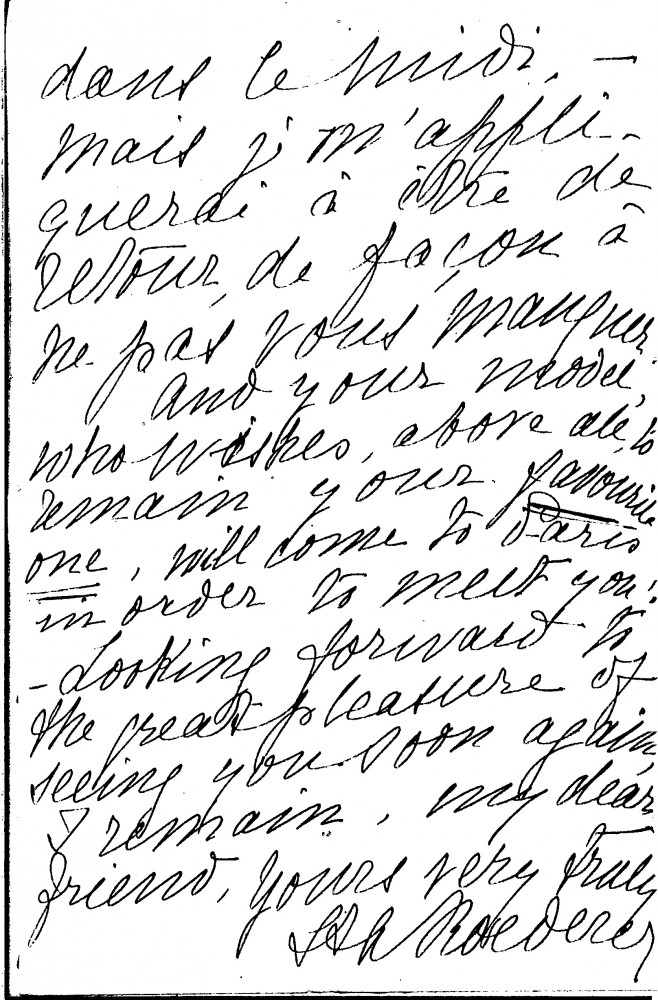 dans le midi, —
mais j' m'appli-
querai à être de
retour, de façon à
ne pas vous manquer
and your model,
who wishes, above all, to
remain your favourite
one, will come to Paris
in order to meet you!
- Looking forward to
the great pleasure of
seeing you soon again,
I remain, my dear
friend, yours very truly
Roederer